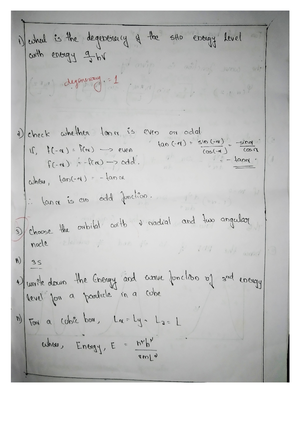 1) What is the degeneracy of the SHO energy level
with energy 9/2 hν
degeneracy = 1
2) Check whether tan x is even or odd
if, f(-x) = f(x) → even
f(-x) = -f(x) → odd.
tan(-x) = sin(-x)/cos(-x) = -sin x/cos x
= -tan x
when, tan(-x) = -tan x
∴ tan x is an odd function.
3) Choose the orbital with 2 radial and two angular
node
A) 3s
write down the Energy and wave function of 2nd energy
level for a particle in a cube
A) For a cubic box, Lx = Ly = Lz = L
where, Energy, E = n²h²/8mL²